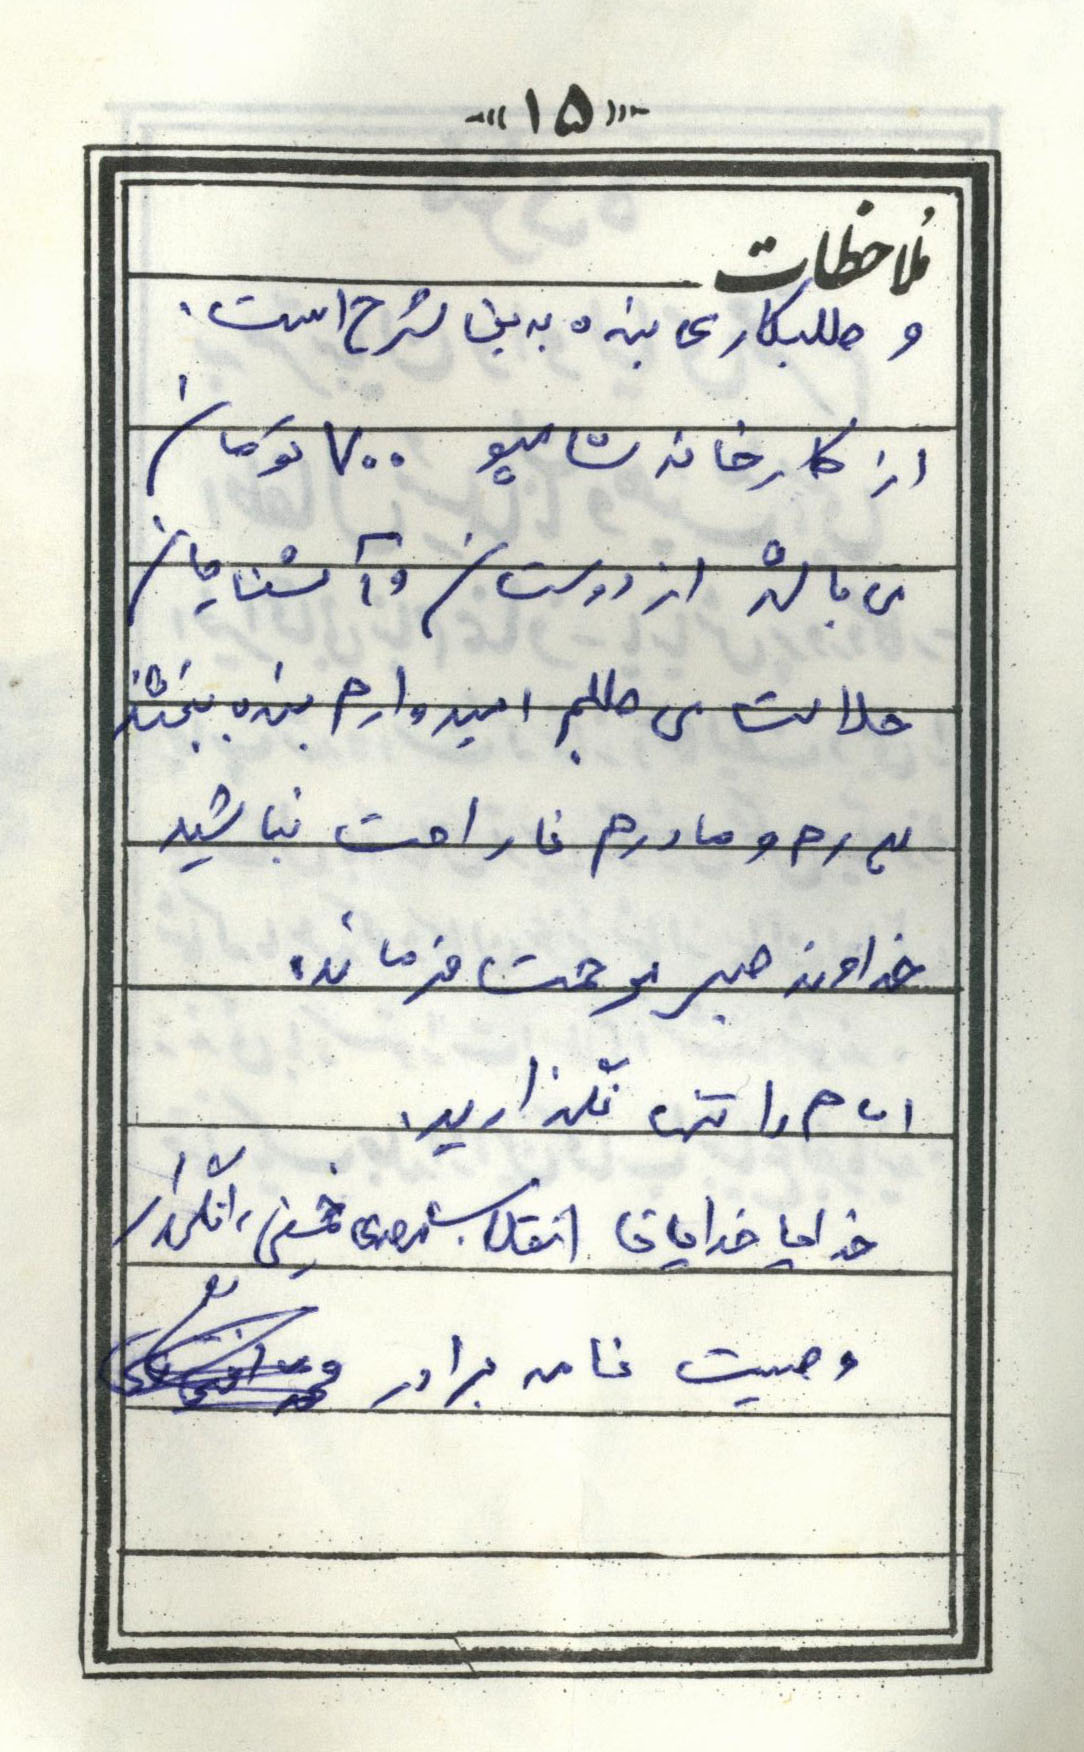 ۱۵
ملاحظات
و طلبکاری بنده بدین شرح است.
از کارخانه شامپو ۷۰۰ تومان
می باشد از دوستان و آشنایان
حلالیت می طلبم امیدوارم بنده ببخشند
پدرم و مادرم ناراحت نباشید
خداوند صبر مرحمت فرماند.
امام را تنها نگذارید.
خدایا خدایا تا انقلاب مهدی خمینی را نگهدار
وصیت نامه برادر